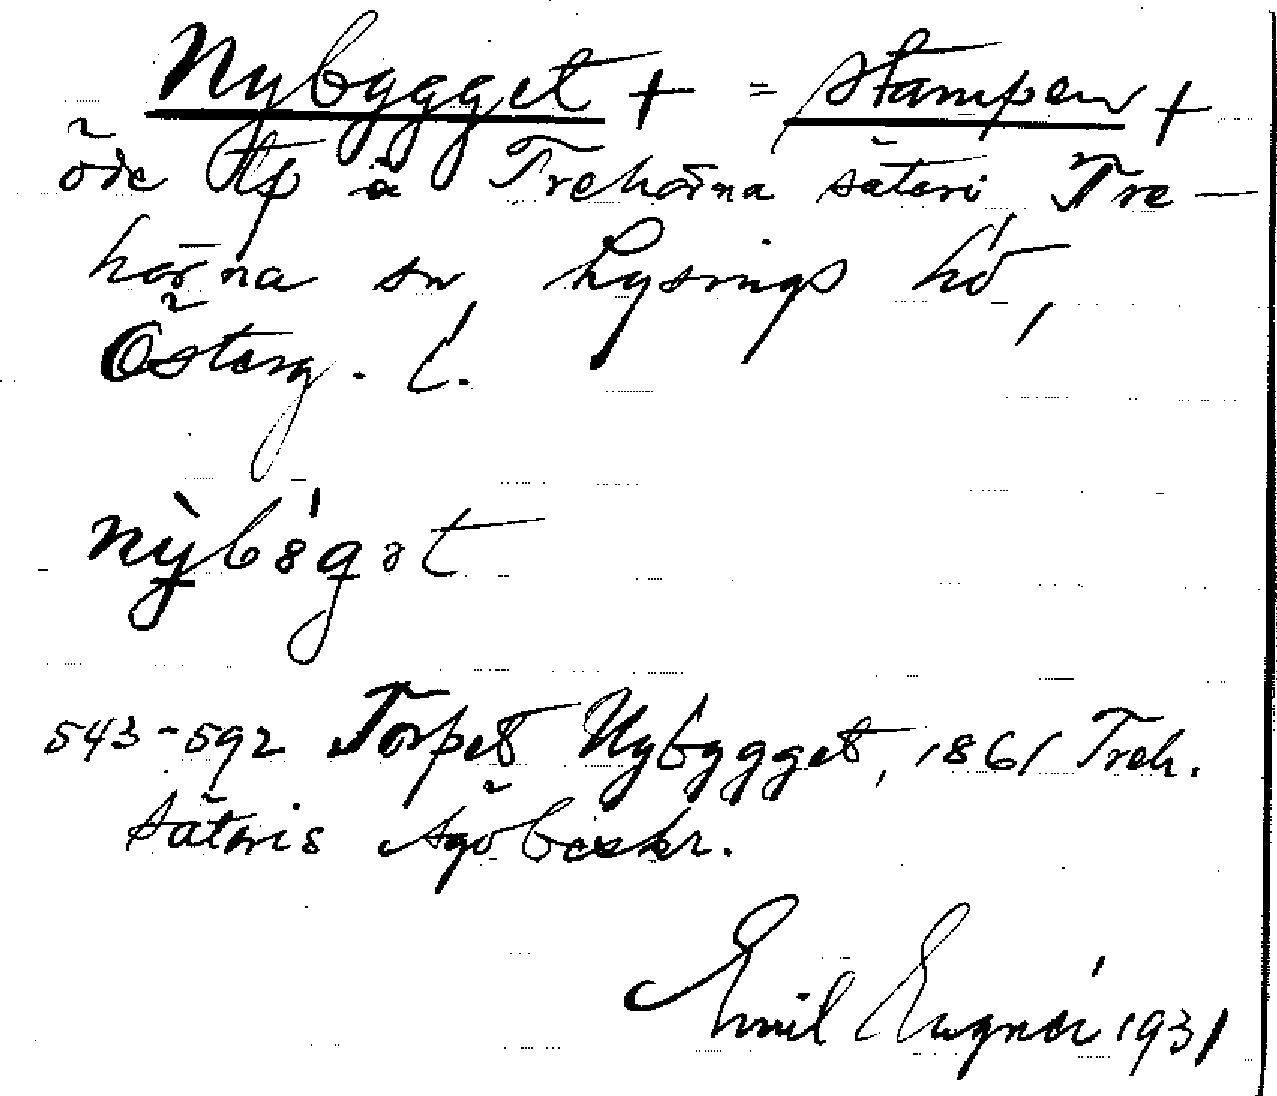 Nybygget + = Stampen +
öde ttp å Trehörna säteri, Tre-
hörna sn Lysings hd,
Österg. l.
nỳb8́gət
543-592 Torpet Nybygget, 1861 Treh.
säteris Ägobeskr.
Emil 1931